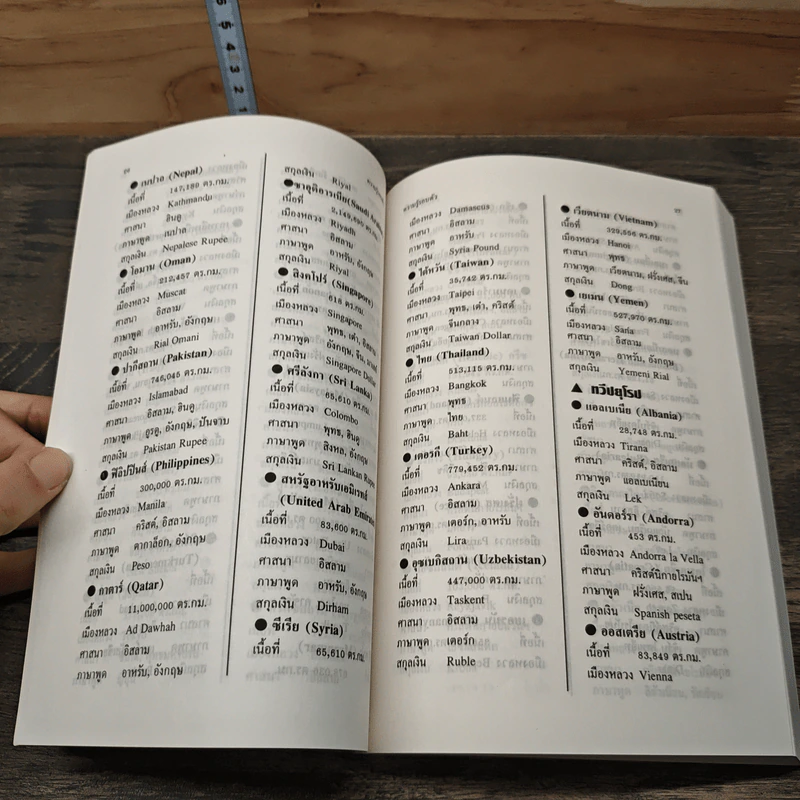 5
4
3
2
1
● เนปาล (Nepal)
เนื้อที่ 147,180 ตร.กม.
เมืองหลวง Kathmandu
ศาสนา ฮินดู
ภาษาพูด เนปาล
สกุลเงิน Nepalese Rupee
● โอมาน (Oman)
เนื้อที่ 212,457 ตร.กม.
เมืองหลวง Muscat
ศาสนา อิสลาม
ภาษาพูด อาหรับ, อังกฤษ
สกุลเงิน Rial Omani
● ปากีสถาน (Pakistan)
เนื้อที่ 746,045 ตร.กม.
เมืองหลวง Islamabad
ศาสนา อิสลาม, ฮินดู
ภาษาพูด อูรดู, อังกฤษ, ปันจาบ
สกุลเงิน Pakistan Rupee
● ฟิลิปปินส์ (Philippines)
เนื้อที่ 300,000 ตร.กม.
เมืองหลวง Manila
ศาสนา คริสต์, อิสลาม
ภาษาพูด ตากาล็อก, อังกฤษ
สกุลเงิน Peso
● กาตาร์ (Qatar)
เนื้อที่ 11,000,000 ตร.กม.
เมืองหลวง Ad Dawhah
ศาสนา อิสลาม
ภาษาพูด อาหรับ, อังกฤษ
สกุลเงิน Riyal
● ซาอุดิอารเบีย (Saudi
เนื้อที่
เมืองหลวง Riyadh
ศาสนา อิสลาม
ภาษาพูด อาหรับ, อังกฤษ
สกุลเงิน Riyal
● สิงคโปร์ (Singapore)
เนื้อที่ 618 ตร.กม.
เมืองหลวง Singapore
ศาสนา พุทธ, เต๋า, อิสลาม
ภาษาพูด อังกฤษ, จีน,
สกุลเงิน Singapore Dollar
● ศรีลังกา (Sri Lanka)
เนื้อที่ 65,610 ตร.กม.
เมืองหลวง Colombo
ศาสนา พุทธ, ฮินดู
ภาษาพูด สิงหล, อังกฤษ
สกุลเงิน Sri Lankan Rupee
● สหรัฐอาหรับเอมิเรทส์
(United Arab Emirates
เนื้อที่ 83,600 ตร.กม.
เมืองหลวง Dubai
ศาสนา อิสลาม
ภาษาพูด อาหรับ, อังกฤษ
สกุลเงิน Dirham
● ซีเรีย (Syria)
เนื้อที่ 65,610 ตร.กม.
ความรู้รอบตัว
เมืองหลวง Damascus
ศาสนา อิสลาม
ภาษาพูด อาหรับ
สกุลเงิน Syria Pound
● ไต้หวัน (Taiwan)
เนื้อที่ 35,742 ตร.กม.
เมืองหลวง Taipei
ศาสนา พุทธ, เต๋า, คริสต์
ภาษาพูด จีนกลาง
สกุลเงิน Taiwan Dollar
● ไทย (Thailand)
เนื้อที่ 513,115 ตร.กม.
เมืองหลวง Bangkok
ศาสนา พุทธ
ภาษาพูด ไทย
สกุลเงิน Baht
● เตอรกี (Turkey)
เนื้อที่ 779,452 ตร.กม.
เมืองหลวง Ankara
ศาสนา อิสลาม
ภาษาพูด เตอร์ก, อาหรับ
สกุลเงิน Lira
● อุซเบกิสถาน (Uzbekistan)
เนื้อที่ 447,000 ตร.กม.
เมืองหลวง Taskent
ศาสนา อิสลาม
ภาษาพูด เตอร์ก
สกุลเงิน Ruble
77
● เวียดนาม (Vietnam)
เนื้อที่ 329,556 ตร.กม.
เมืองหลวง Hanoi
ศาสนา พุทธ
ภาษาพูด เวียดนาม, ฝรั่งเศส, จีน
สกุลเงิน Dong
● เยเมน (Yemen)
เนื้อที่ 527,970 ตร.กม.
เมืองหลวง Sana
ศาสนา อิสลาม
ภาษาพูด อาหรับ, อังกฤษ
สกุลเงิน Yemeni Rial
▲ ทวีปยุโรป
● แอลเบเนีย (Albania)
เนื้อที่ 28,748 ตร.กม.
เมืองหลวง Tirana
ศาสนา คริสต์, อิสลาม
ภาษาพูด แอลเบเนียน
สกุลเงิน Lek
● อันดอร์รา (Andorra)
เนื้อที่ 453 ตร.กม.
เมืองหลวง Andorra la Vella
ศาสนา คริสต์นิกายโรมันฯ
ภาษาพูด ฝรั่งเศส, สเปน
สกุลเงิน Spanish peseta
● ออสเตรีย (Austria)
เนื้อที่ 83,849 ตร.กม.
เมืองหลวง Vienna